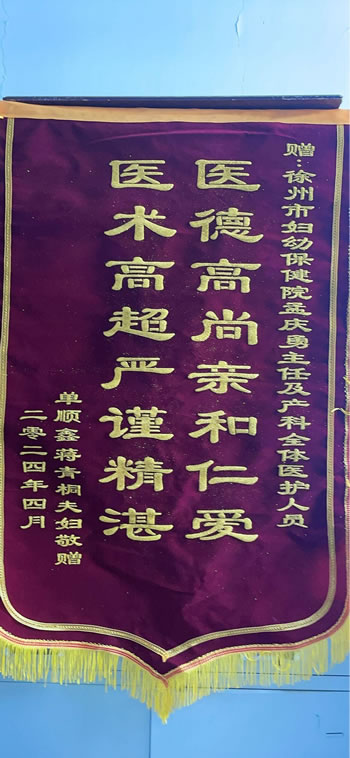 赠：徐州市妇幼保健院孟庆勇主任及产科全体医护人员
医德高尚亲和仁爱
医术高超严谨精湛
单顺鑫蒋青桐夫妇敬赠
二零二四年四月